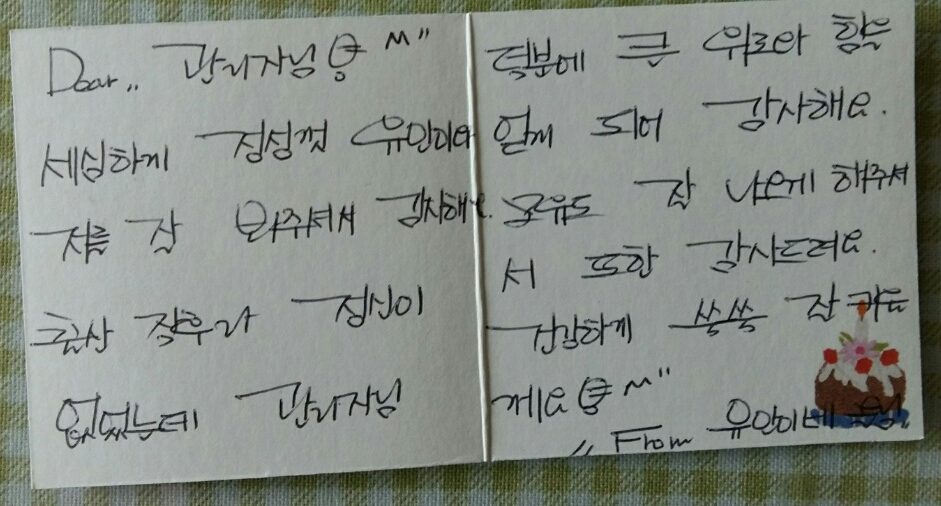 Dear,, 관리자님 ^^
세심하게 정성껏 유안이와
저를 잘 봐주셔서 감사해요.
출산 직후라 정신이
없었는데 관리자님
덕분에 큰 위로와 힘을
얻게 되어 감사해요.
모유도 잘 나오게 해주셔
서 또한 감사드려요.
건강하게 쑥쑥 잘 키울
게요 ^^
,, From 유안이네